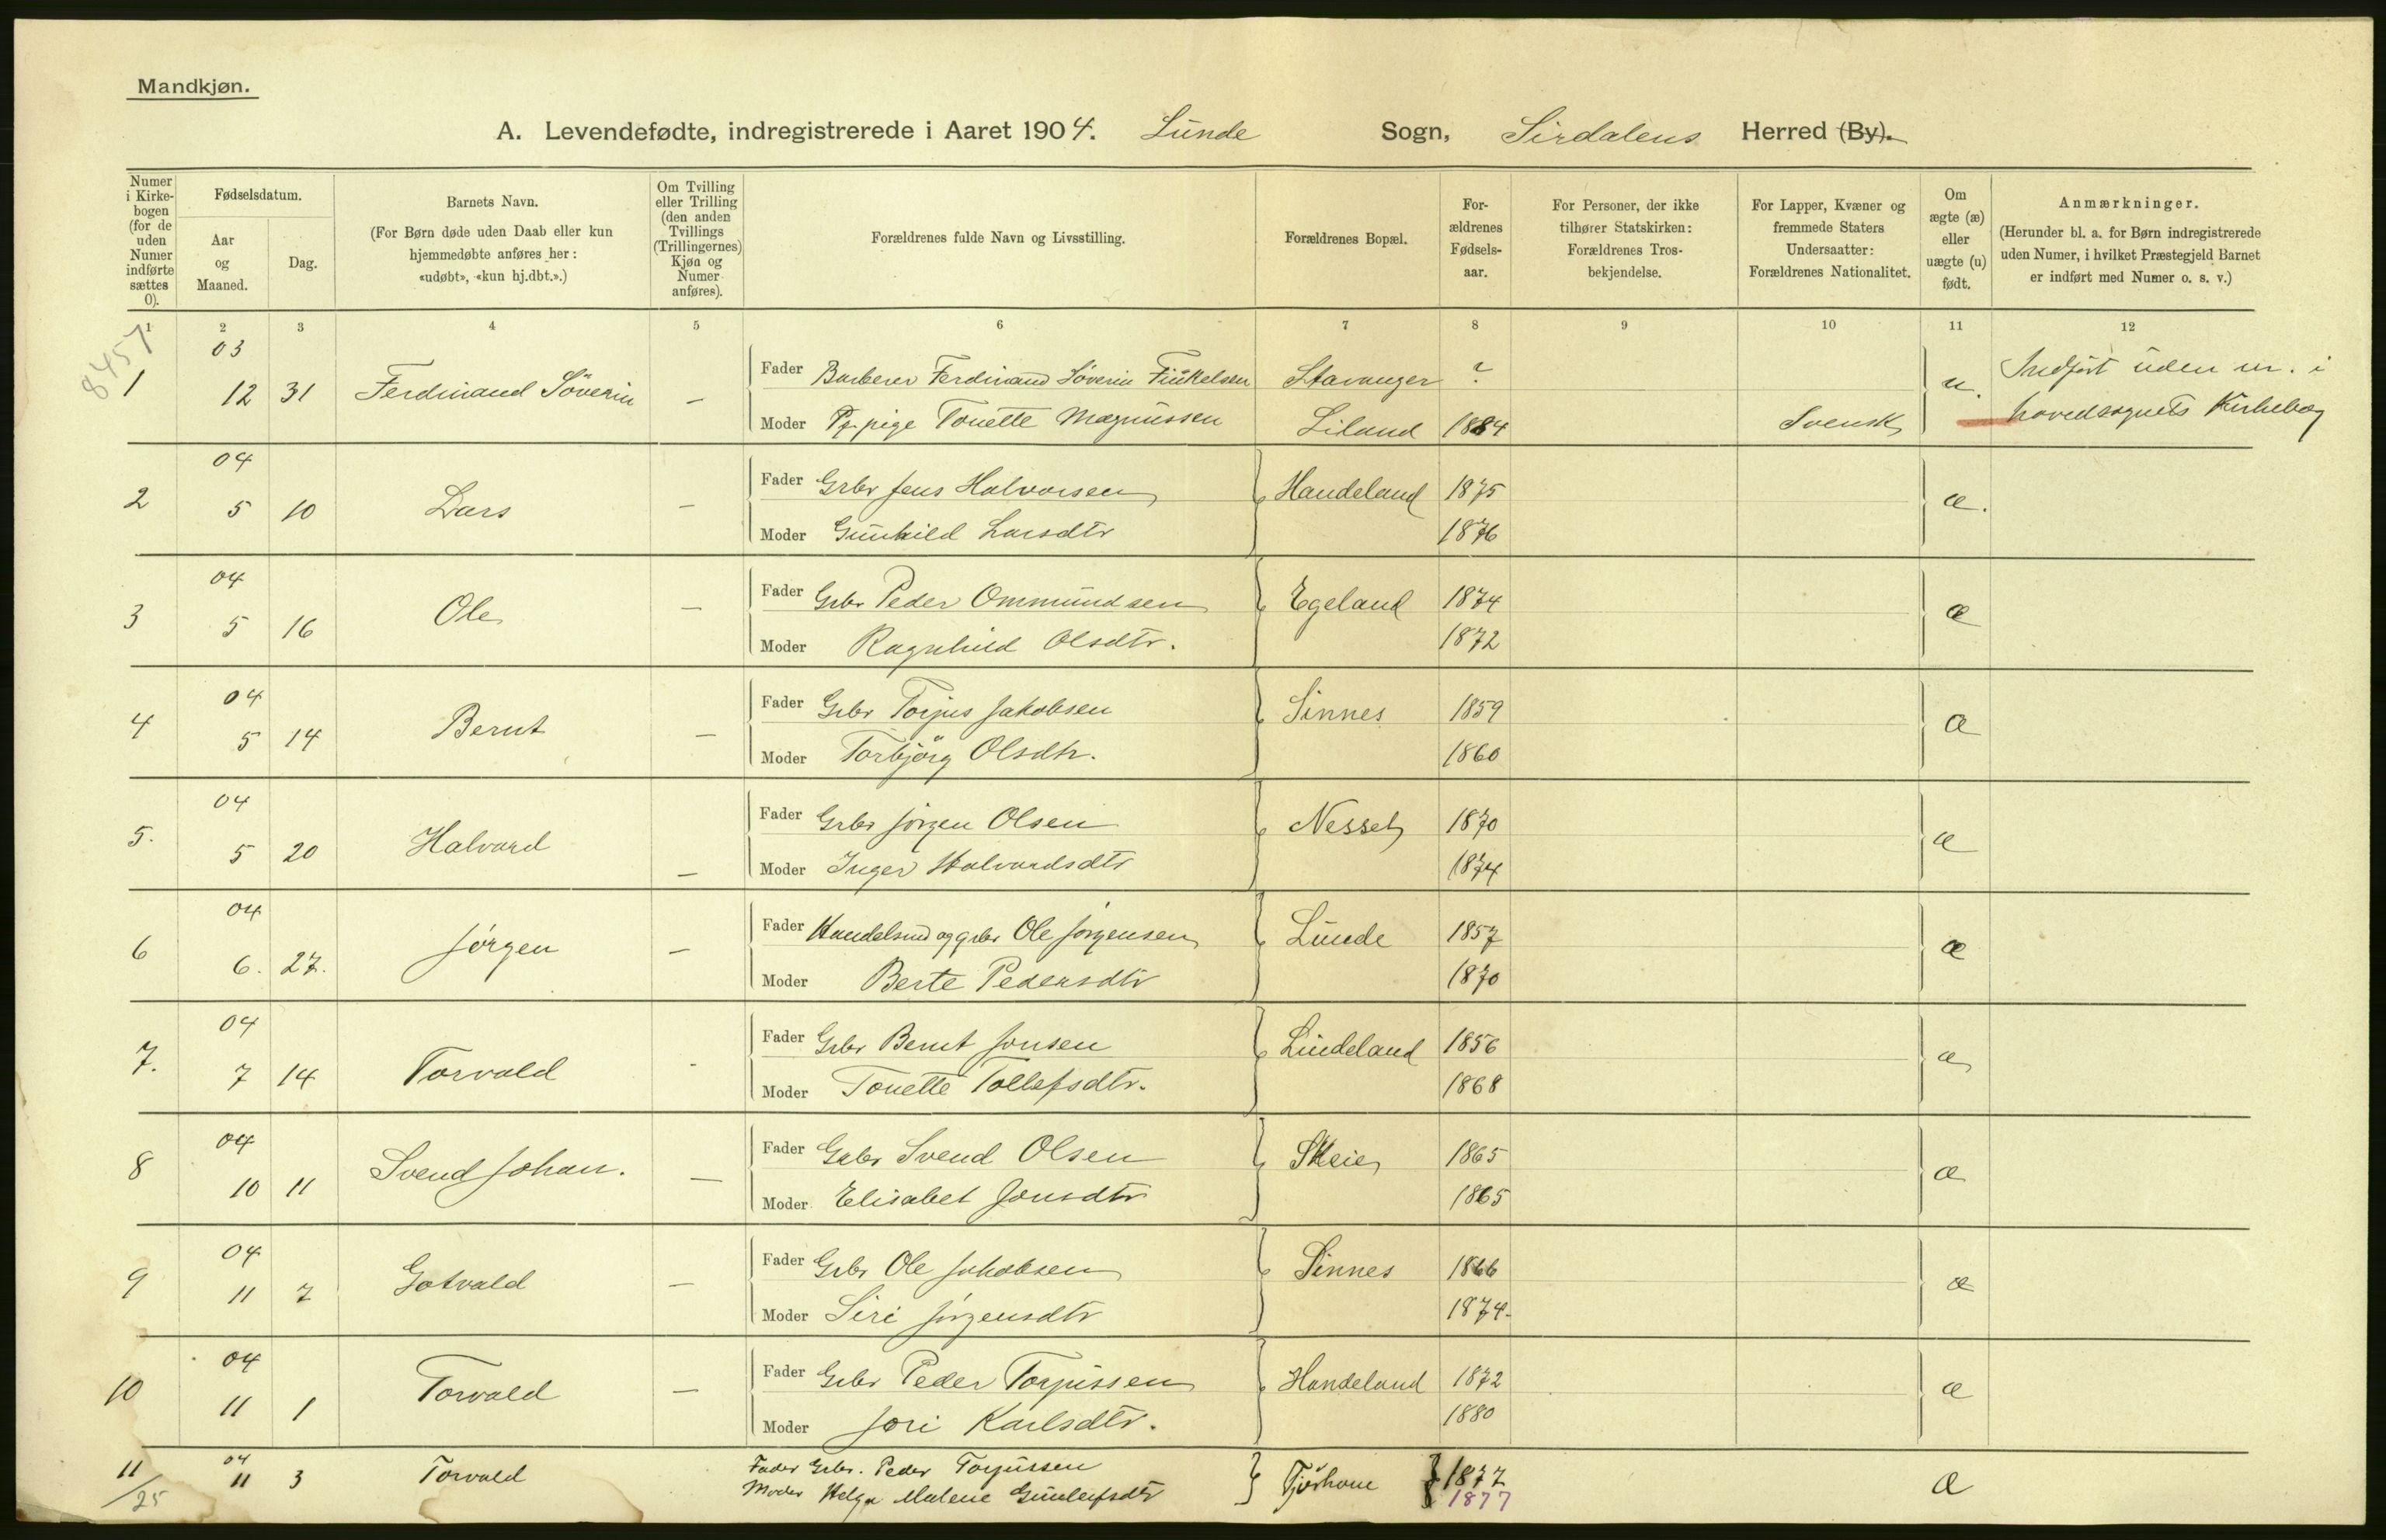 Mandkjøn.
A. Levendefødte, indregistrerede i Aaret 1904. Lunde Sogn, Sirdalens Herred (By).
Numer i Kirke- bogen (for de uden Numer indførte sættes 0).
Fødselsdatum.
Aar og Maaned.
Dag.
Barnets Navn.
(For Børn døde uden Daab eller kun hjemmedøbte anføres her: «udøbt», «kun hj.dbt.».)
Om Tvilling eller Trilling (den anden Tvillings (Trillingernes) Kjøn og Numer anføres).
Forældrenes fulde Navn og Livsstilling.
Forældrenes Bopæl.
For- ældrenes Fødsels- aar.
For Personer, der ikke tilhører Statskirken: Forældrenes Tros- bekjendelse.
For Lapper, Kvæner og fremmede Staters Undersaatter: Forældrenes Nationalitet.
Om ægte (æ) eller uægte (u) født.
Anmærkninger.
(Herunder bl. a. for Børn indregistrerede uden Numer, i hvilket Præstegjeld Barnet er indført med Numer o. s. v.)
1 2 3 4 5 6 7 8 9 10 11 12
8457
1 03 12 31 Ferdinand Söverin — Fader Barberer Ferdinand Söverin Finkelsen Stavanger ? u. Indført uden nr. i
Moder Pige Tonette Magnussen Liland 1884 Svensk hovedsognets Kirkebog
2 04 5 10 Lars — Fader Grbr Jens Halvorsen Handeland 1875 æ.
Moder Gunhild Larsdtr 1876
3 04 5 16 Ole — Fader Grbr Peder Ommundsen Egeland 1874 æ
Moder Ragnhild Olsdtr. 1872
4 04 5 14 Bernt — Fader Grbr Torjus Jakobsen Sinnes 1859 æ
Moder Torbjörg Olsdtr. 1860
5. 04 5 20 Halvard — Fader Grbr Jörgen Olsen Nesset 1870 æ
Moder Inger Halvardsdtr 1874
6 04 6. 27. Jörgen — Fader Handelsmd og grbr Ole Jörgensen Lunde 1857 æ
Moder Berte Pedersdtr 1870
7. 04 7 14 Torvald - Fader Grbr Bernt Jonsen Lindeland 1856 æ
Moder Tonette Tollefsdtr. 1868
8 04 10 11 Svend Johan. — Fader Grbr Svend Olsen Skeie 1865 æ
Moder Elisabet Jonsdtr 1865
9 04 11 7 Gotvald — Fader Grbr Ole Jakobsen Sinnes 1866 æ
Moder Siri Jörgensdtr 1874.
10 04 11 1 Torvald — Fader Grbr Peder Torjussen Handeland 1872 æ
Moder Jori Karlsdtr. 1880
11 04 11 3 Torvald Fader Grbr. Peder Torjussen Tjörhom 1877 æ
25 Moder Helga Malene Gunleifsdtr 1877